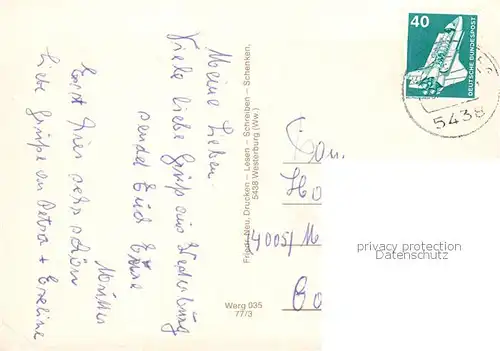 Meine Lieben.
Viele liebe Grüße aus Westerburg
sendet Euch Eure
Mutter
hier sehr schön
Liebe Grüße an Petra + Eveline
Friedr. Neu, Drucken – Lesen – Schreiben – Schenken,
5438 Westerburg (Ww.)
Werg 035
77/3
40
DEUTSCHE BUNDESPOST
5438
Fam.
Ho
4005/M
privacy protection
Datenschutz